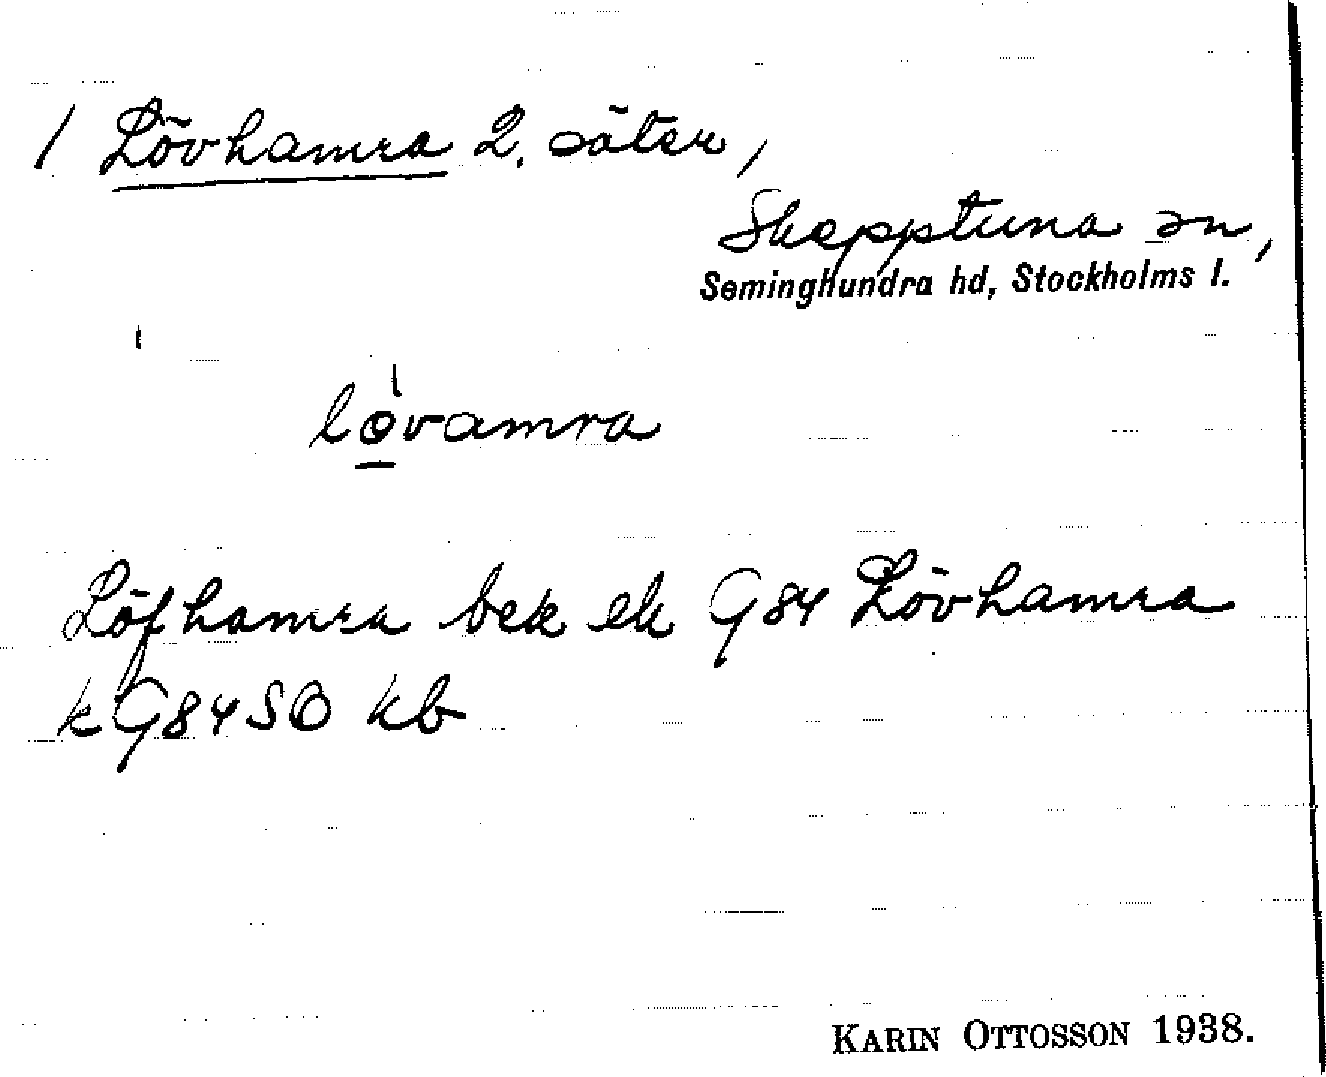 / Lövhamra 2. säteri,
Skepptuna sn,
Seminghundra hd, Stockholms l.
løvamra
Löfhamra bek ek G84 Lövhamra
k G84 SO kb
KARIN OTTOSSON 1938.